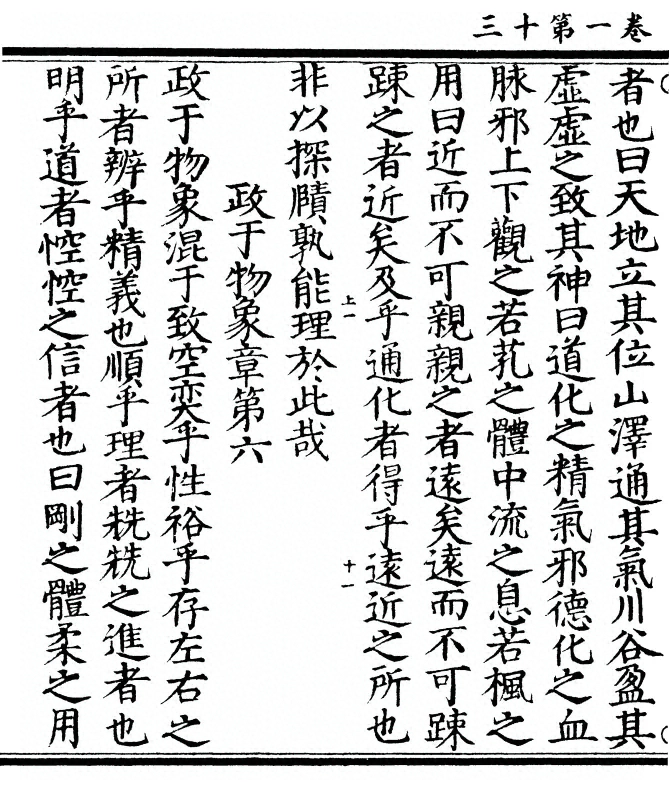 卷一第十三
者也曰天地立其位山澤通其氣川谷盈其
虛虛之致其神曰道化之精氣邪德化之血
脉邪上下觀之若乳之體中流之息若楓之
用曰近而不可親親之者遠矣遠而不可踈
踈之者近矣及乎通化者得乎遠近之所也
非以探賾孰能理於此哉
上一
十一
政于物象章第六
政于物象混于致空奕乎性裕乎存左右之
所者辨乎精義也順乎理者兟兟之進者也
明乎道者悾悾之信者也曰剛之體柔之用